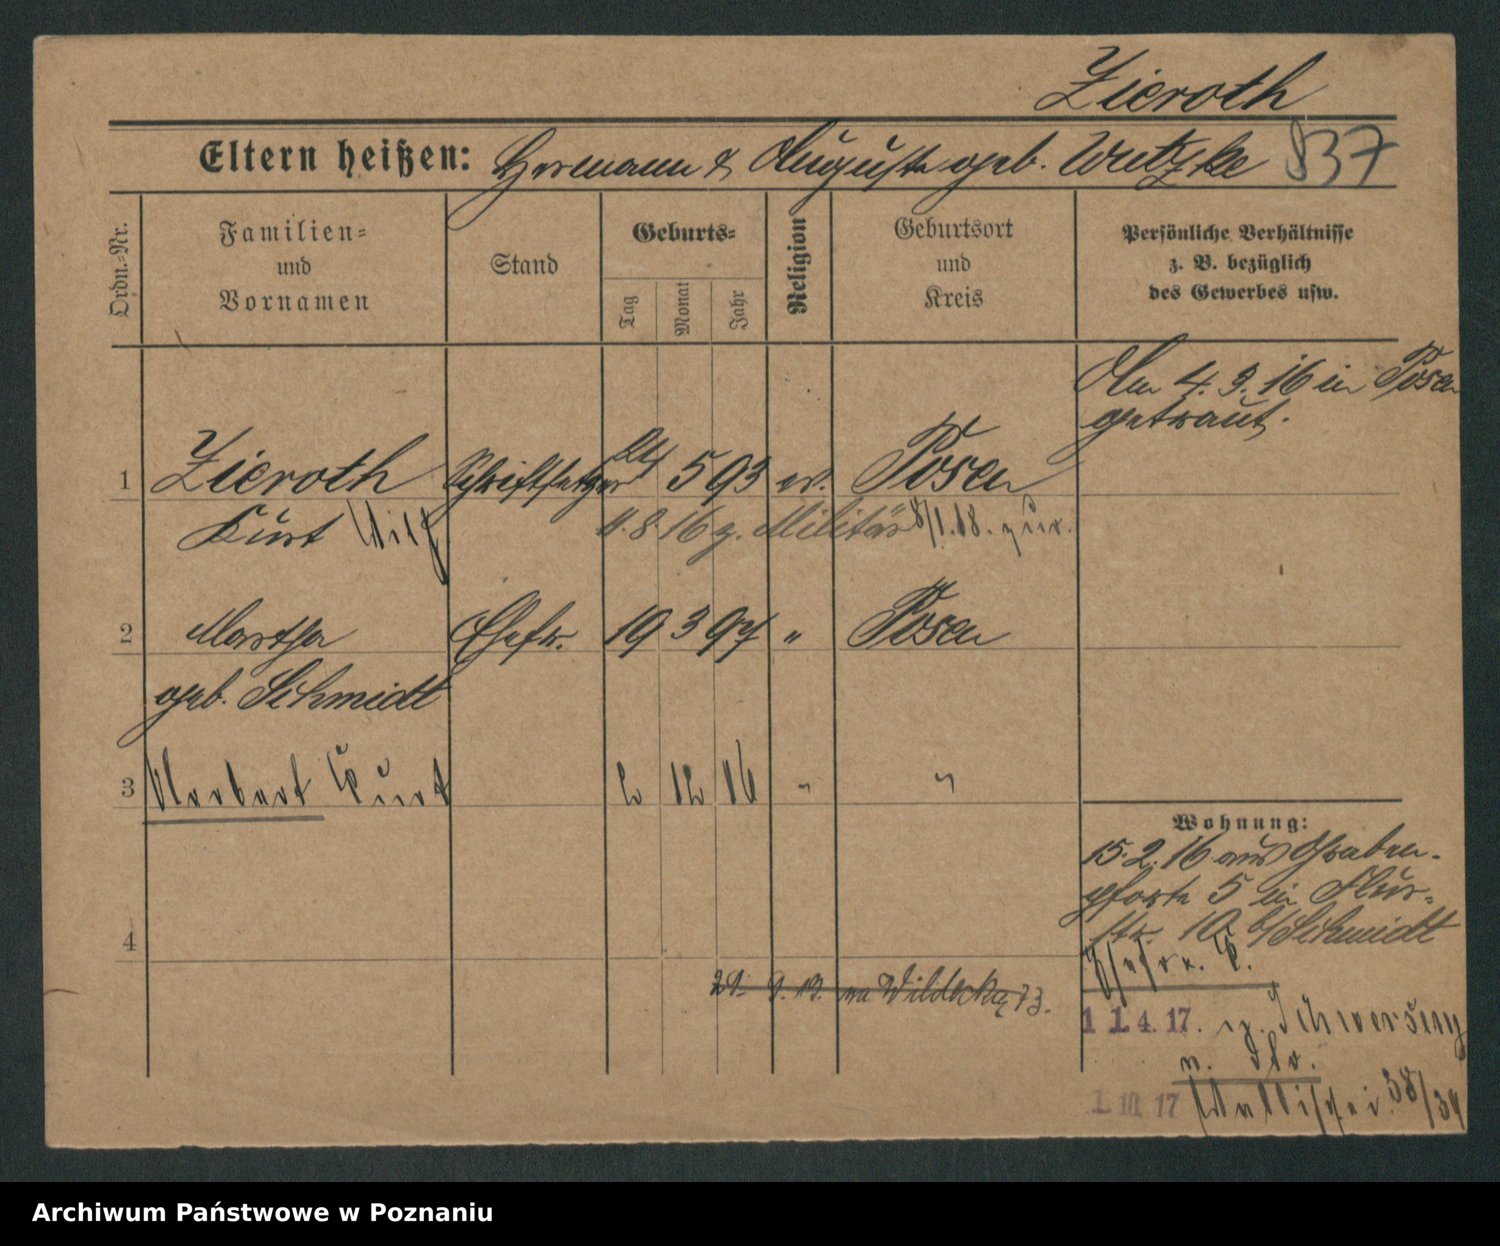 Zieroth
Eltern heißen: Hermann & Auguste geb. Wutzke 837
Ordn.-Nr.
Familien-
und
Vornamen
Stand
Geburts-
Tag
Monat
Jahr
Religion
Geburtsort
und
Kreis
Persönliche Verhältnisse
z. B. bezüglich
des Gewerbes usw.
Am 4. 3. 16 in Posen
getraut.
1 Zieroth Schriftsetzer 24 5 93 ev. Posen
Kurt
11. 8. 16 z. Militär 8/1. 18. zur.
2 Martha Ehefr. 19 3 94 " Posen
geb. Schmidt
3 Norbert Kurt 2 12 16 " "
Wohnung:
15. 2. 16 aus Graben-
pforte 5 in Flur-
str. 10 b/Schmidt
4
Ehefr. K.
29. 9. 19. na Wildecka 73.
1 1. 4. 17. Schwersenz
n.
1. 10. 17 Wallischei. 38/39
Archiwum Państwowe w Poznaniu